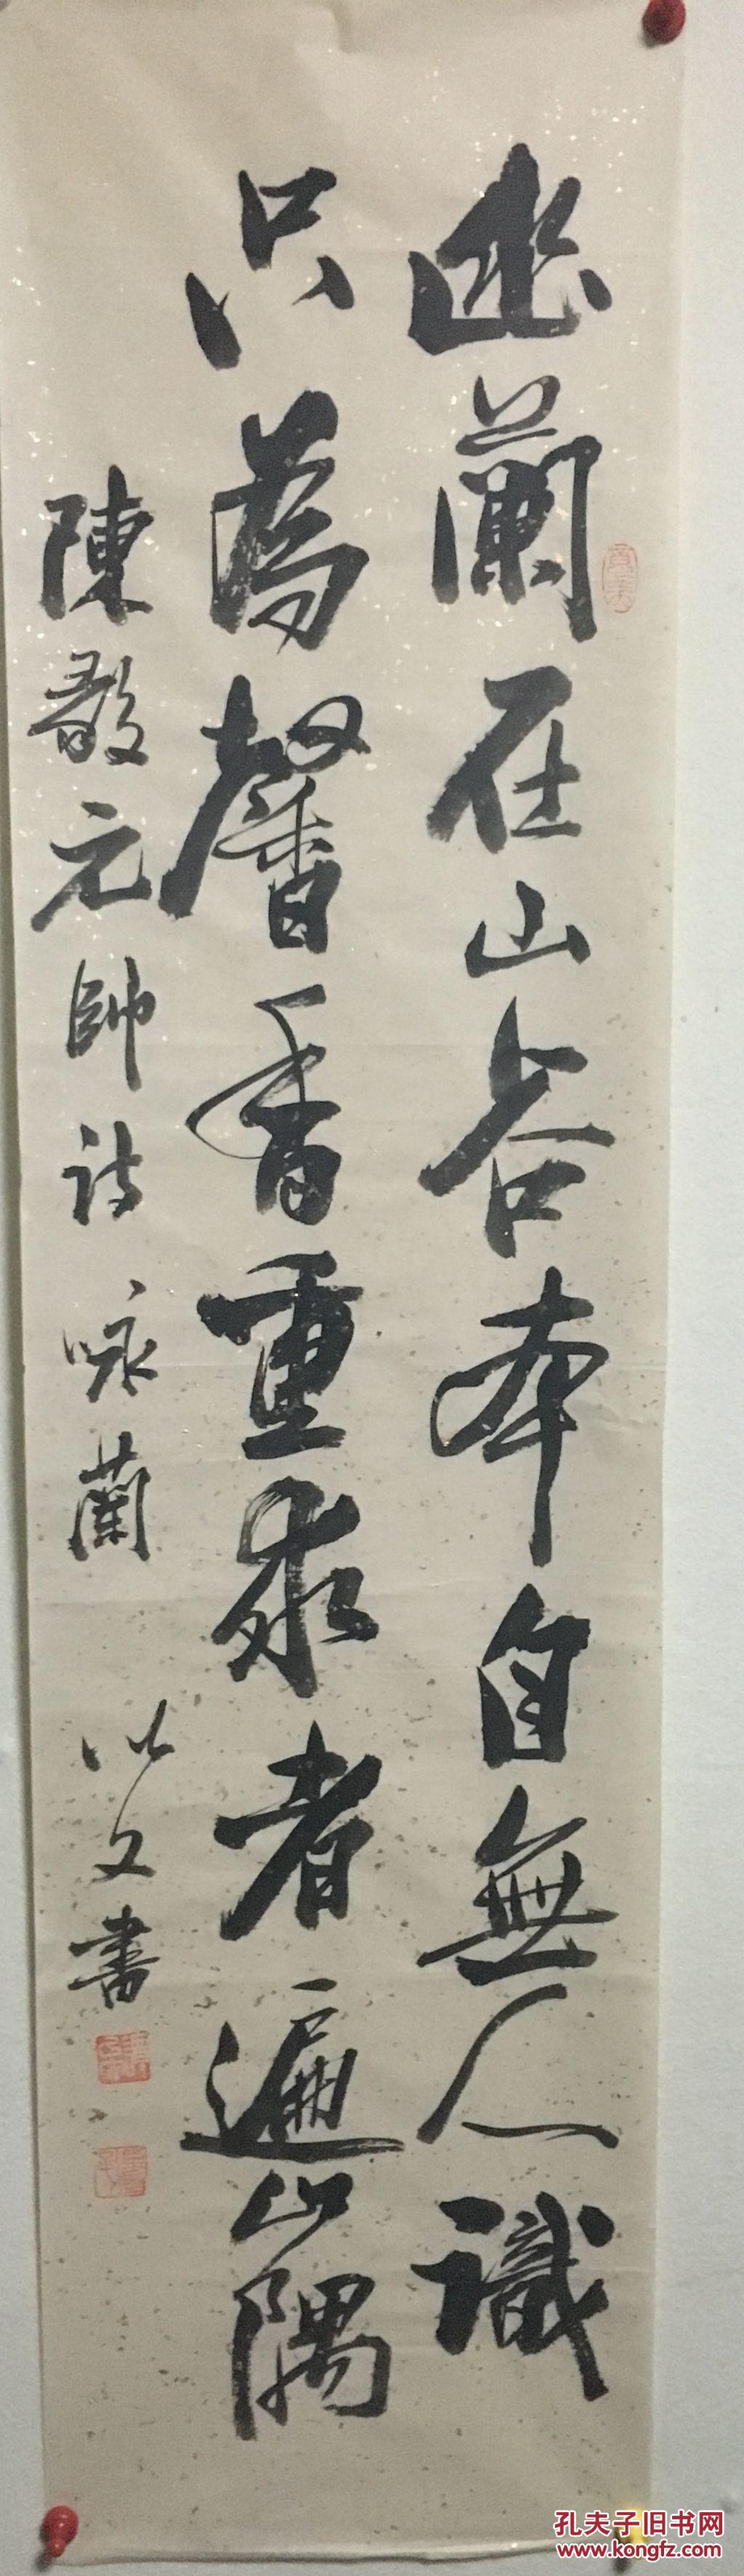 幽蘭在山谷本自無人識
只為馨香重求者遍山隅
陳毅元帥詩咏蘭 以文書
孔夫子旧书网
www.kongfz.com